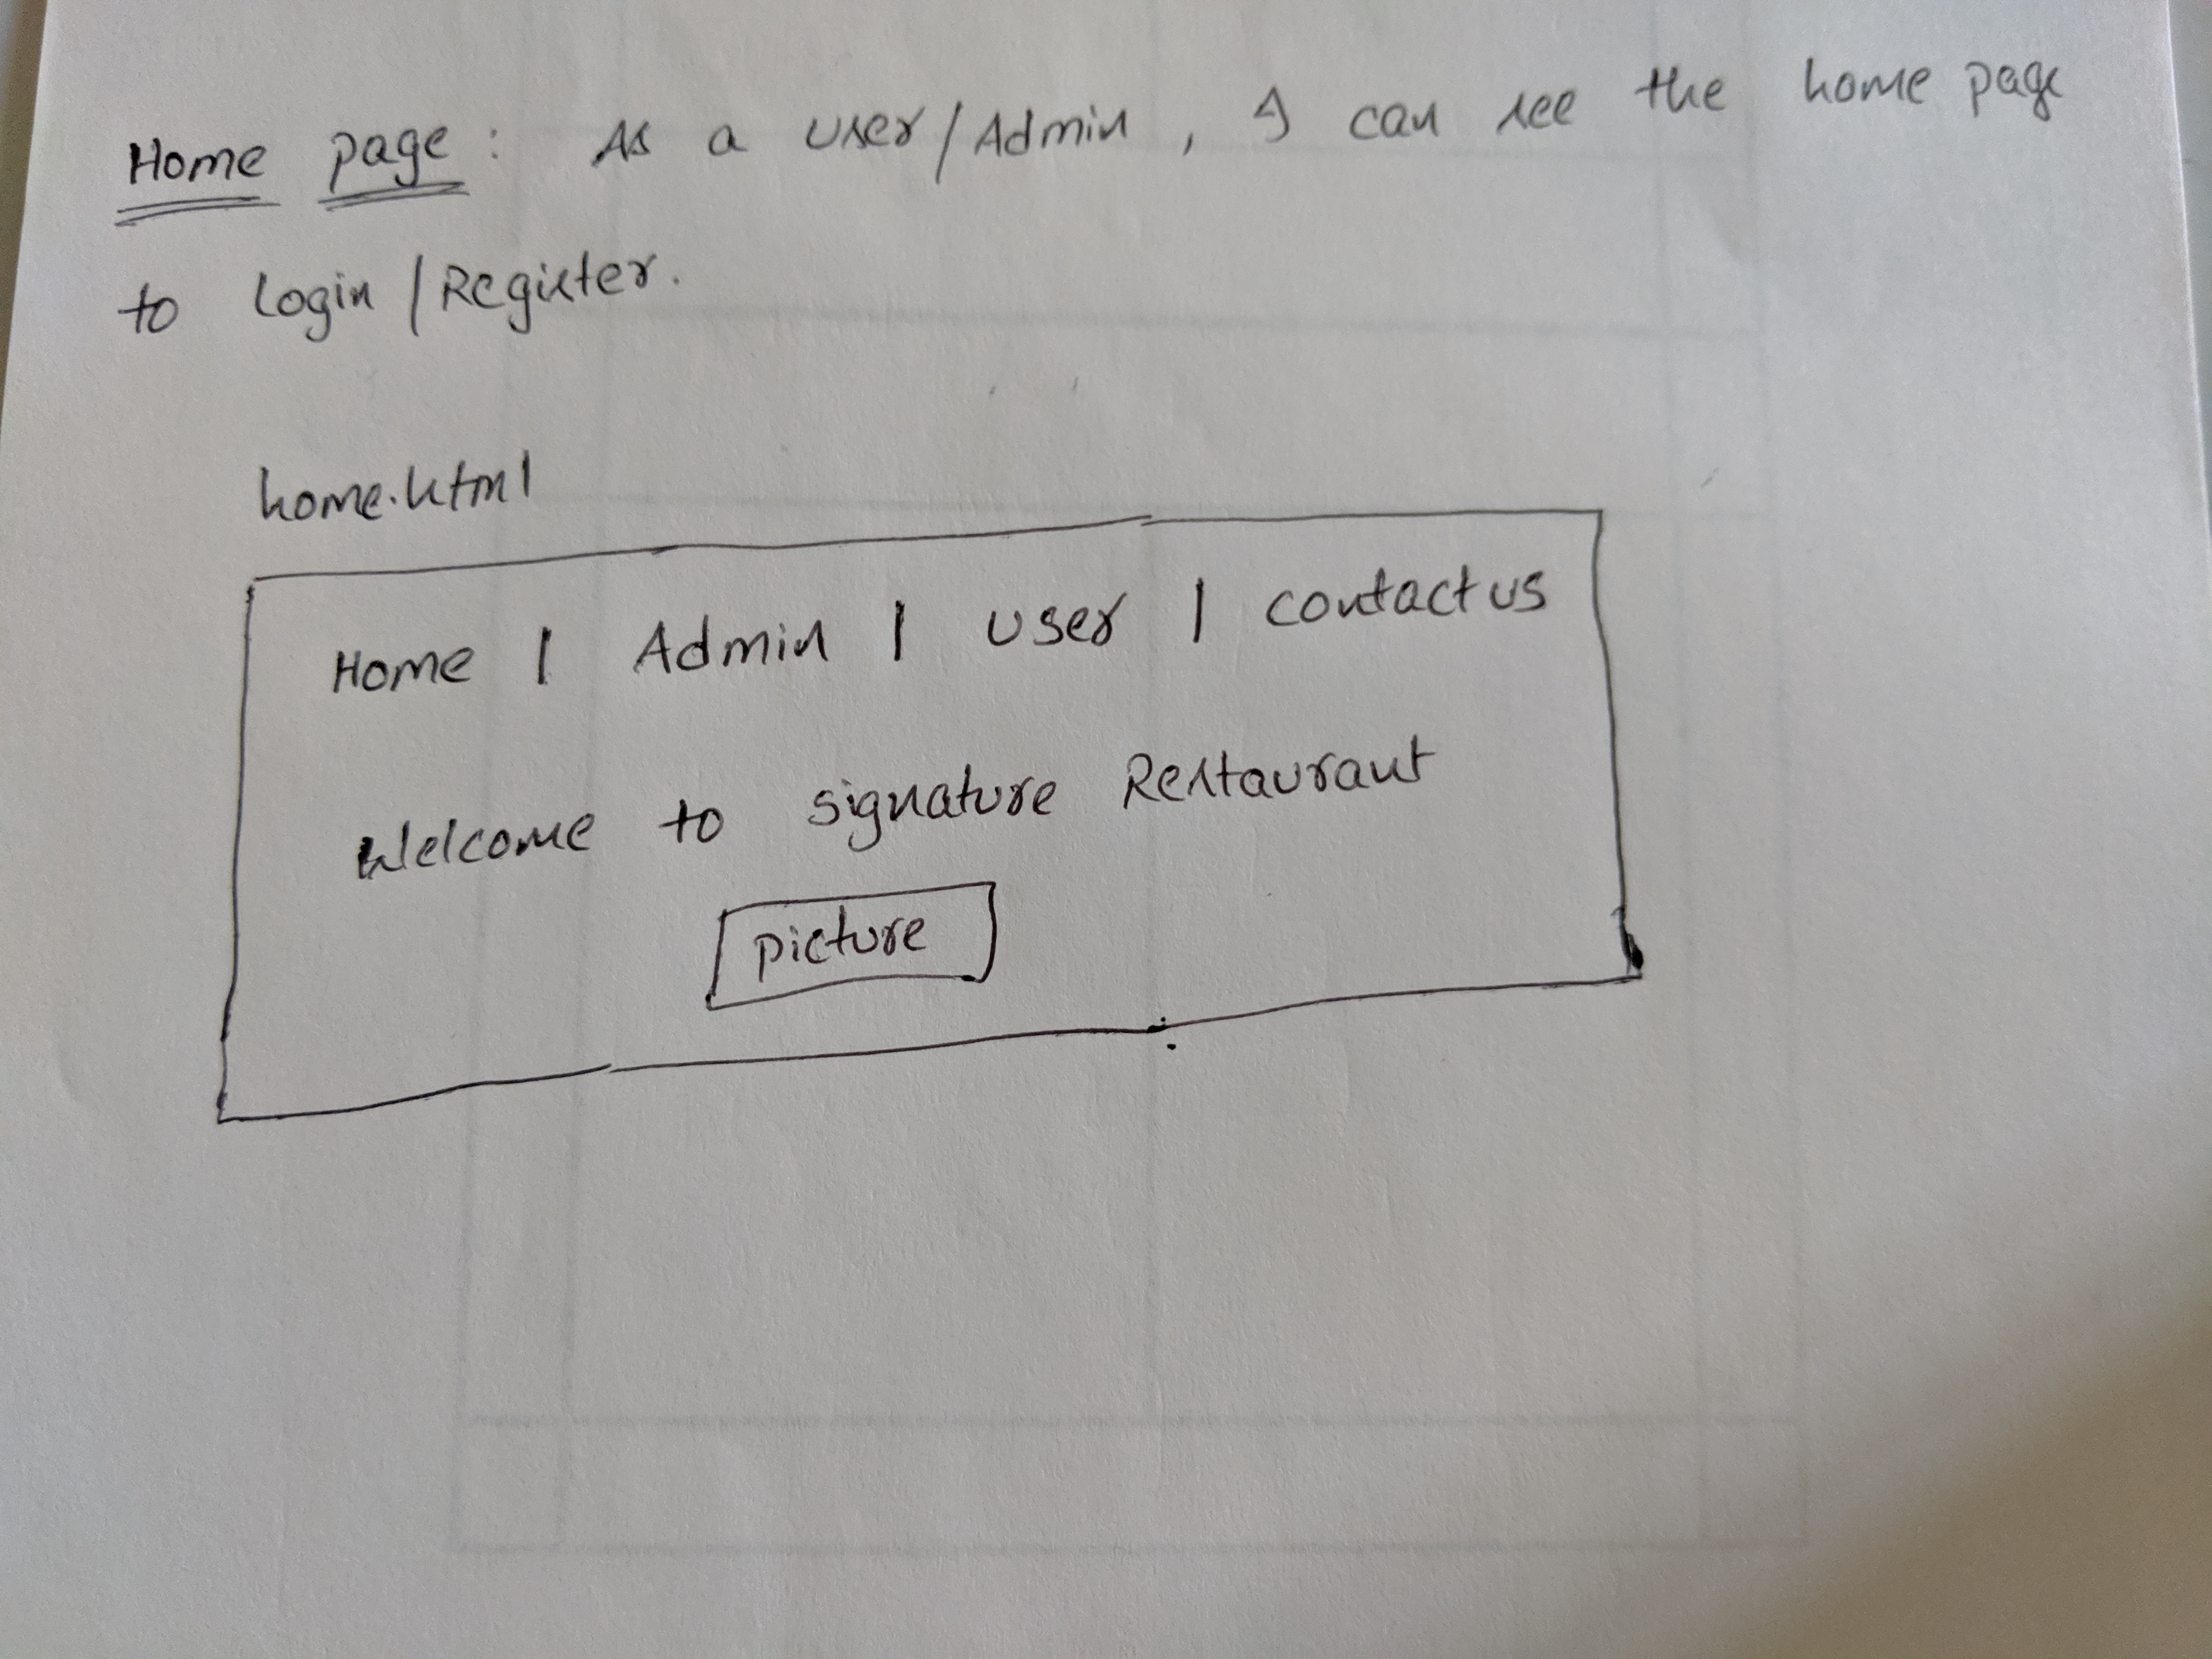 Home page : As a user/Admin, I can see the home page
to login/Register.
home.html
Home | Admin | user | contact us
Welcome to signature Restaurant
picture